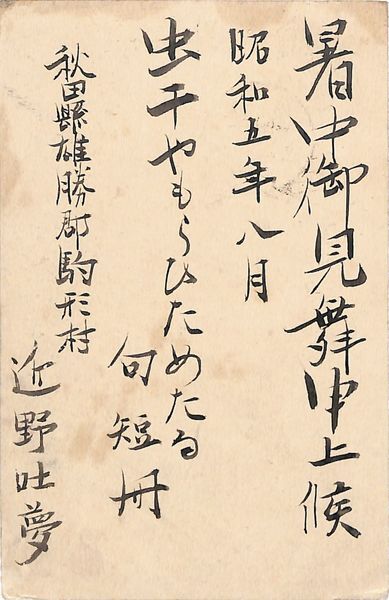 暑中御見舞申上候
昭和五年八月
虫干やもらひためたる
句短冊
秋田縣雄勝郡駒形村
近野吐夢